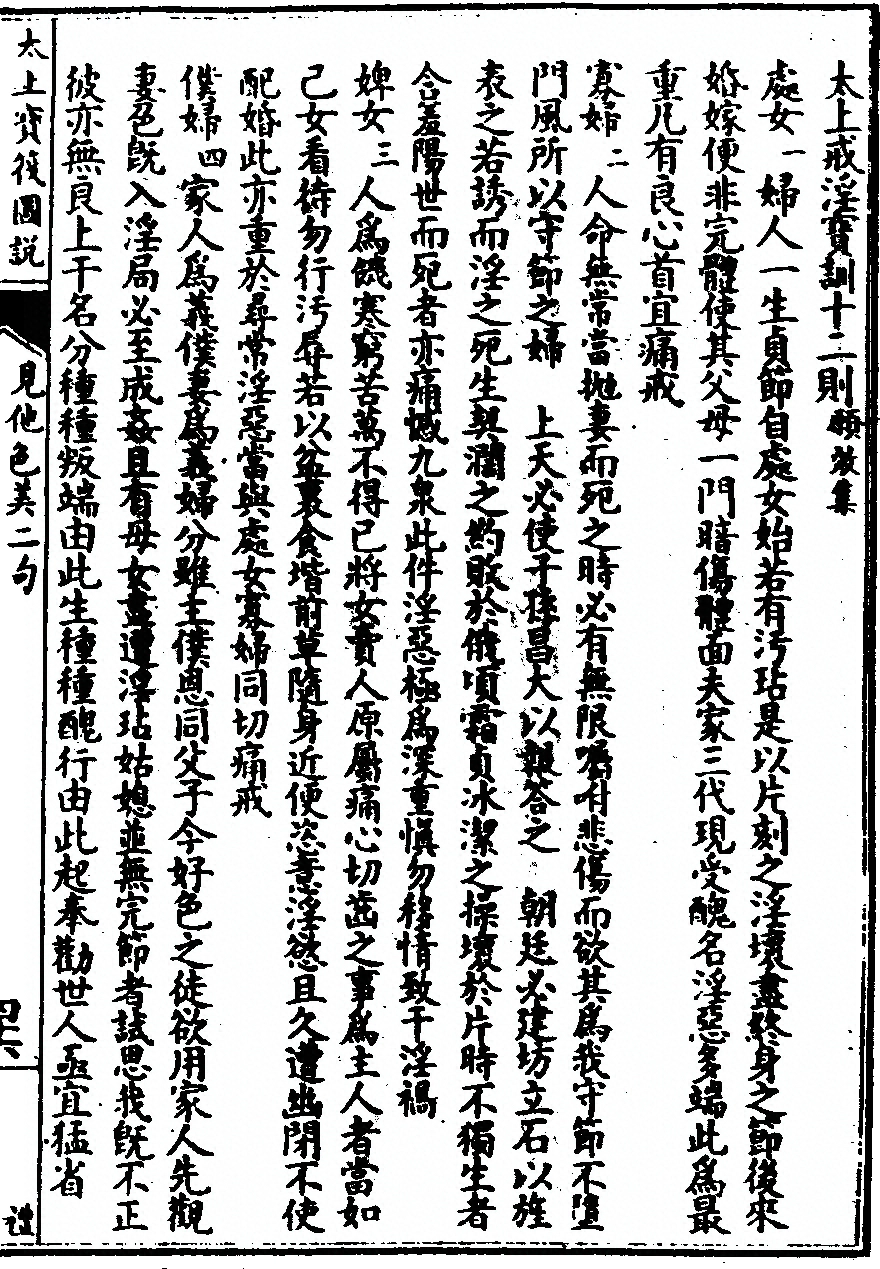 太上戒淫寶訓十二則願效集
處女一婦人一生貞節自處女始若有污玷是以片刻之淫壞盡終身之節後來
婚嫁便非完體使其父母一門暗傷體面夫家三代現受醜名淫惡多端此為最
重凡有良心首宜痛戒
寡婦二人命無常當拋妻而死之時必有無限囑咐悲傷而欲其為我守節不墮
門風所以守節之婦　上天必使子孫昌大以報答之　朝廷必建坊立石以旌
表之若誘而淫之死生契濶之約敗於俄頃霜貞冰潔之操壞於片時不獨生者
含羞陽世而死者亦痛憾九泉此件淫惡極為深重愼勿移情致干淫禍
婢女三人為饑寒窮苦萬不得已將女賣人原屬痛心切齒之事為主人者當如
己女看待勿行污辱若以盆裏食堦前草隨身近便恣意淫慾且久遭幽閉不使
配婚此亦重於尋常淫惡當與處女寡婦同切痛戒
僕婦四家人為義僕妻為義婦分雖主僕恩同父子今好色之徒欲用家人先觀
妻色旣入淫局必至成姦且有母女盡遭淫玷姑媳並無完節者試思我旣不正
彼亦無良上干名分種種叛端由此生種種醜行由此起奉勸世人亟宜猛省
太上寶筏圖説
見他色美二句
四六
禮